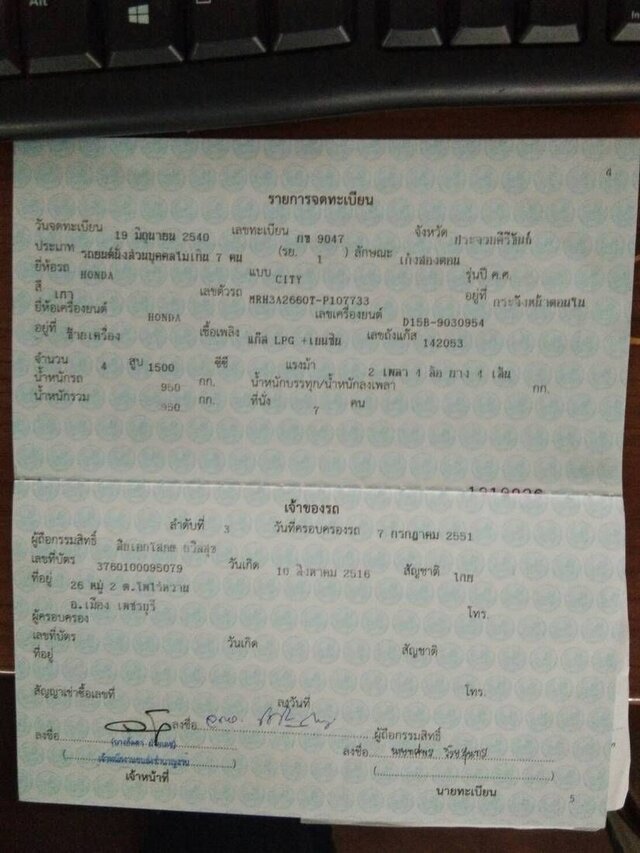 Alt
4
รายการจดทะเบียน
วันจดทะเบียน 19 มิถุนายน 2540 เลขทะเบียน กข 9047 จังหวัด ประจวบคีรีขันธ์
ประเภท รถยนต์นั่งส่วนบุคคลไม่เกิน 7 คน (รย. 1 ) ลักษณะ เก๋งสองตอน
ยี่ห้อรถ HONDA แบบ CITY รุ่นปี ค.ศ.
สี เทา เลขตัวรถ MRH3A2660T-P107733 อยู่ที่ กระจังหน้าตอนใน
ยี่ห้อเครื่องยนต์ HONDA เลขเครื่องยนต์ D15B-9030954
อยู่ที่ ซ้ายเครื่อง เชื้อเพลิง แก๊ส LPG +เบนซิน เลขถังแก๊ส 142053
จำนวน 4 สูบ 1500 ซีซี แรงม้า 2 เพลา 4 ล้อ ยาง 4 เส้น
น้ำหนักรถ 950 กก. น้ำหนักบรรทุก/น้ำหนักลงเพลา กก.
น้ำหนักรวม 950 กก. ที่นั่ง 7 คน
เจ้าของรถ
ลำดับที่ 3 วันที่ครอบครองรถ 7 กรกฎาคม 2551
ผู้ถือกรรมสิทธิ์
เลขที่บัตร 3760100095079 วันเกิด 10 สิงหาคม 2516 สัญชาติ ไทย
ที่อยู่ 26 หมู่ 2 ต.โพไร่หวาน
อ.เมือง เพชรบุรี โทร.
ผู้ครอบครอง
เลขที่บัตร วันเกิด สัญชาติ
ที่อยู่
สัญญาเช่าซื้อเลขที่ ลงวันที่ โทร.
ลงชื่อ ผู้ถือกรรมสิทธิ์
ลงชื่อ ลงชื่อ
เจ้าพนักงานขนส่งชำนาญงาน
เจ้าหน้าที่ นายทะเบียน
5